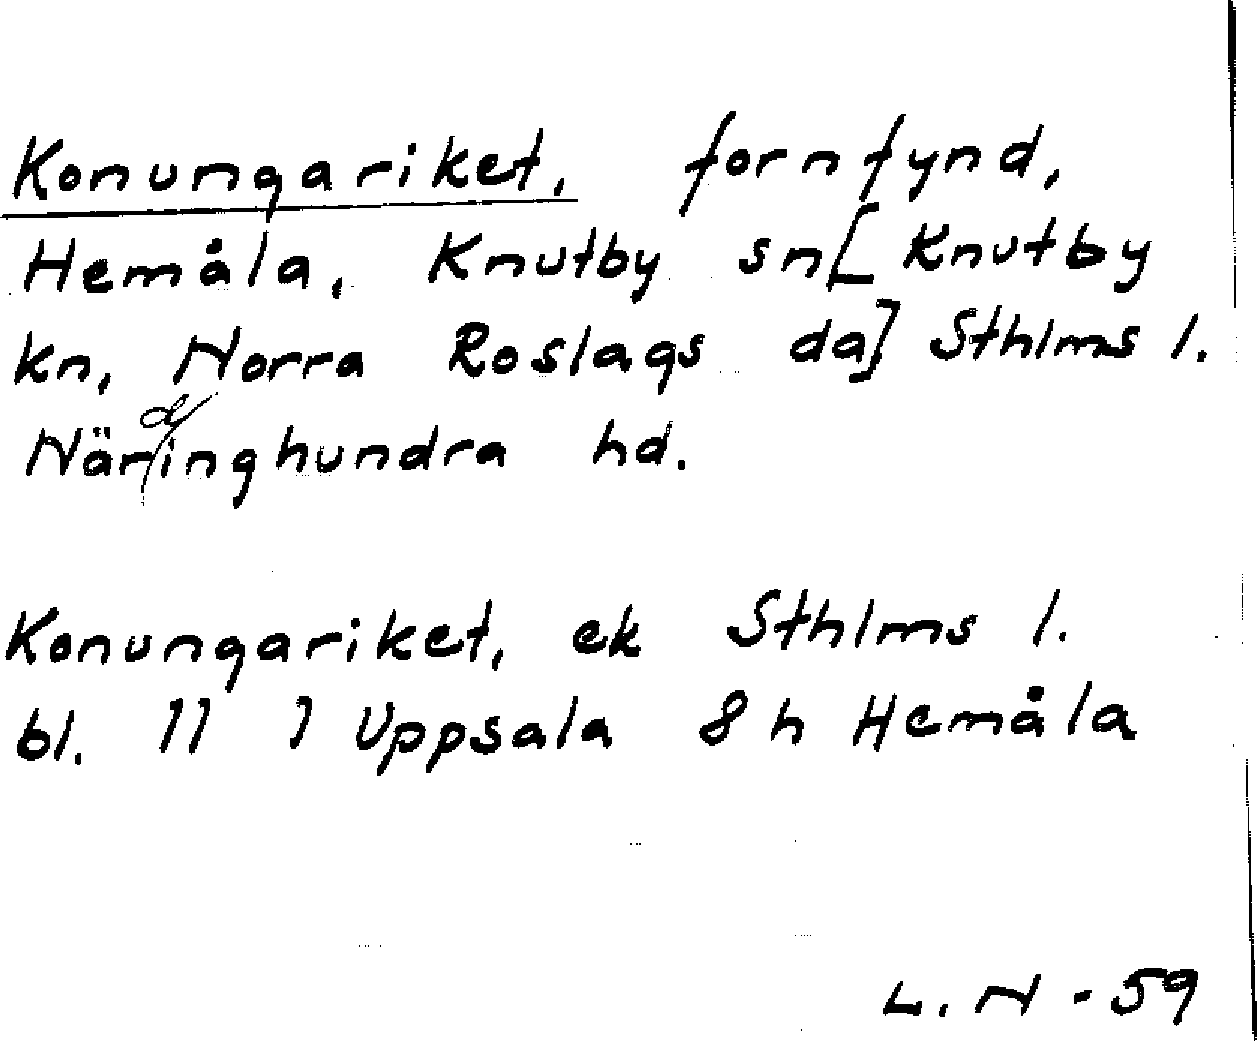 Konungariket, fornfynd,
Hemåla, Knutby sn [Knutby
kn, Norra Roslags da] Sthlms l.
Närdinghundra hd.
Konungariket, ek Sthlms l.
bl. 11 I Uppsala 8 h Hemåla
L. N - 59